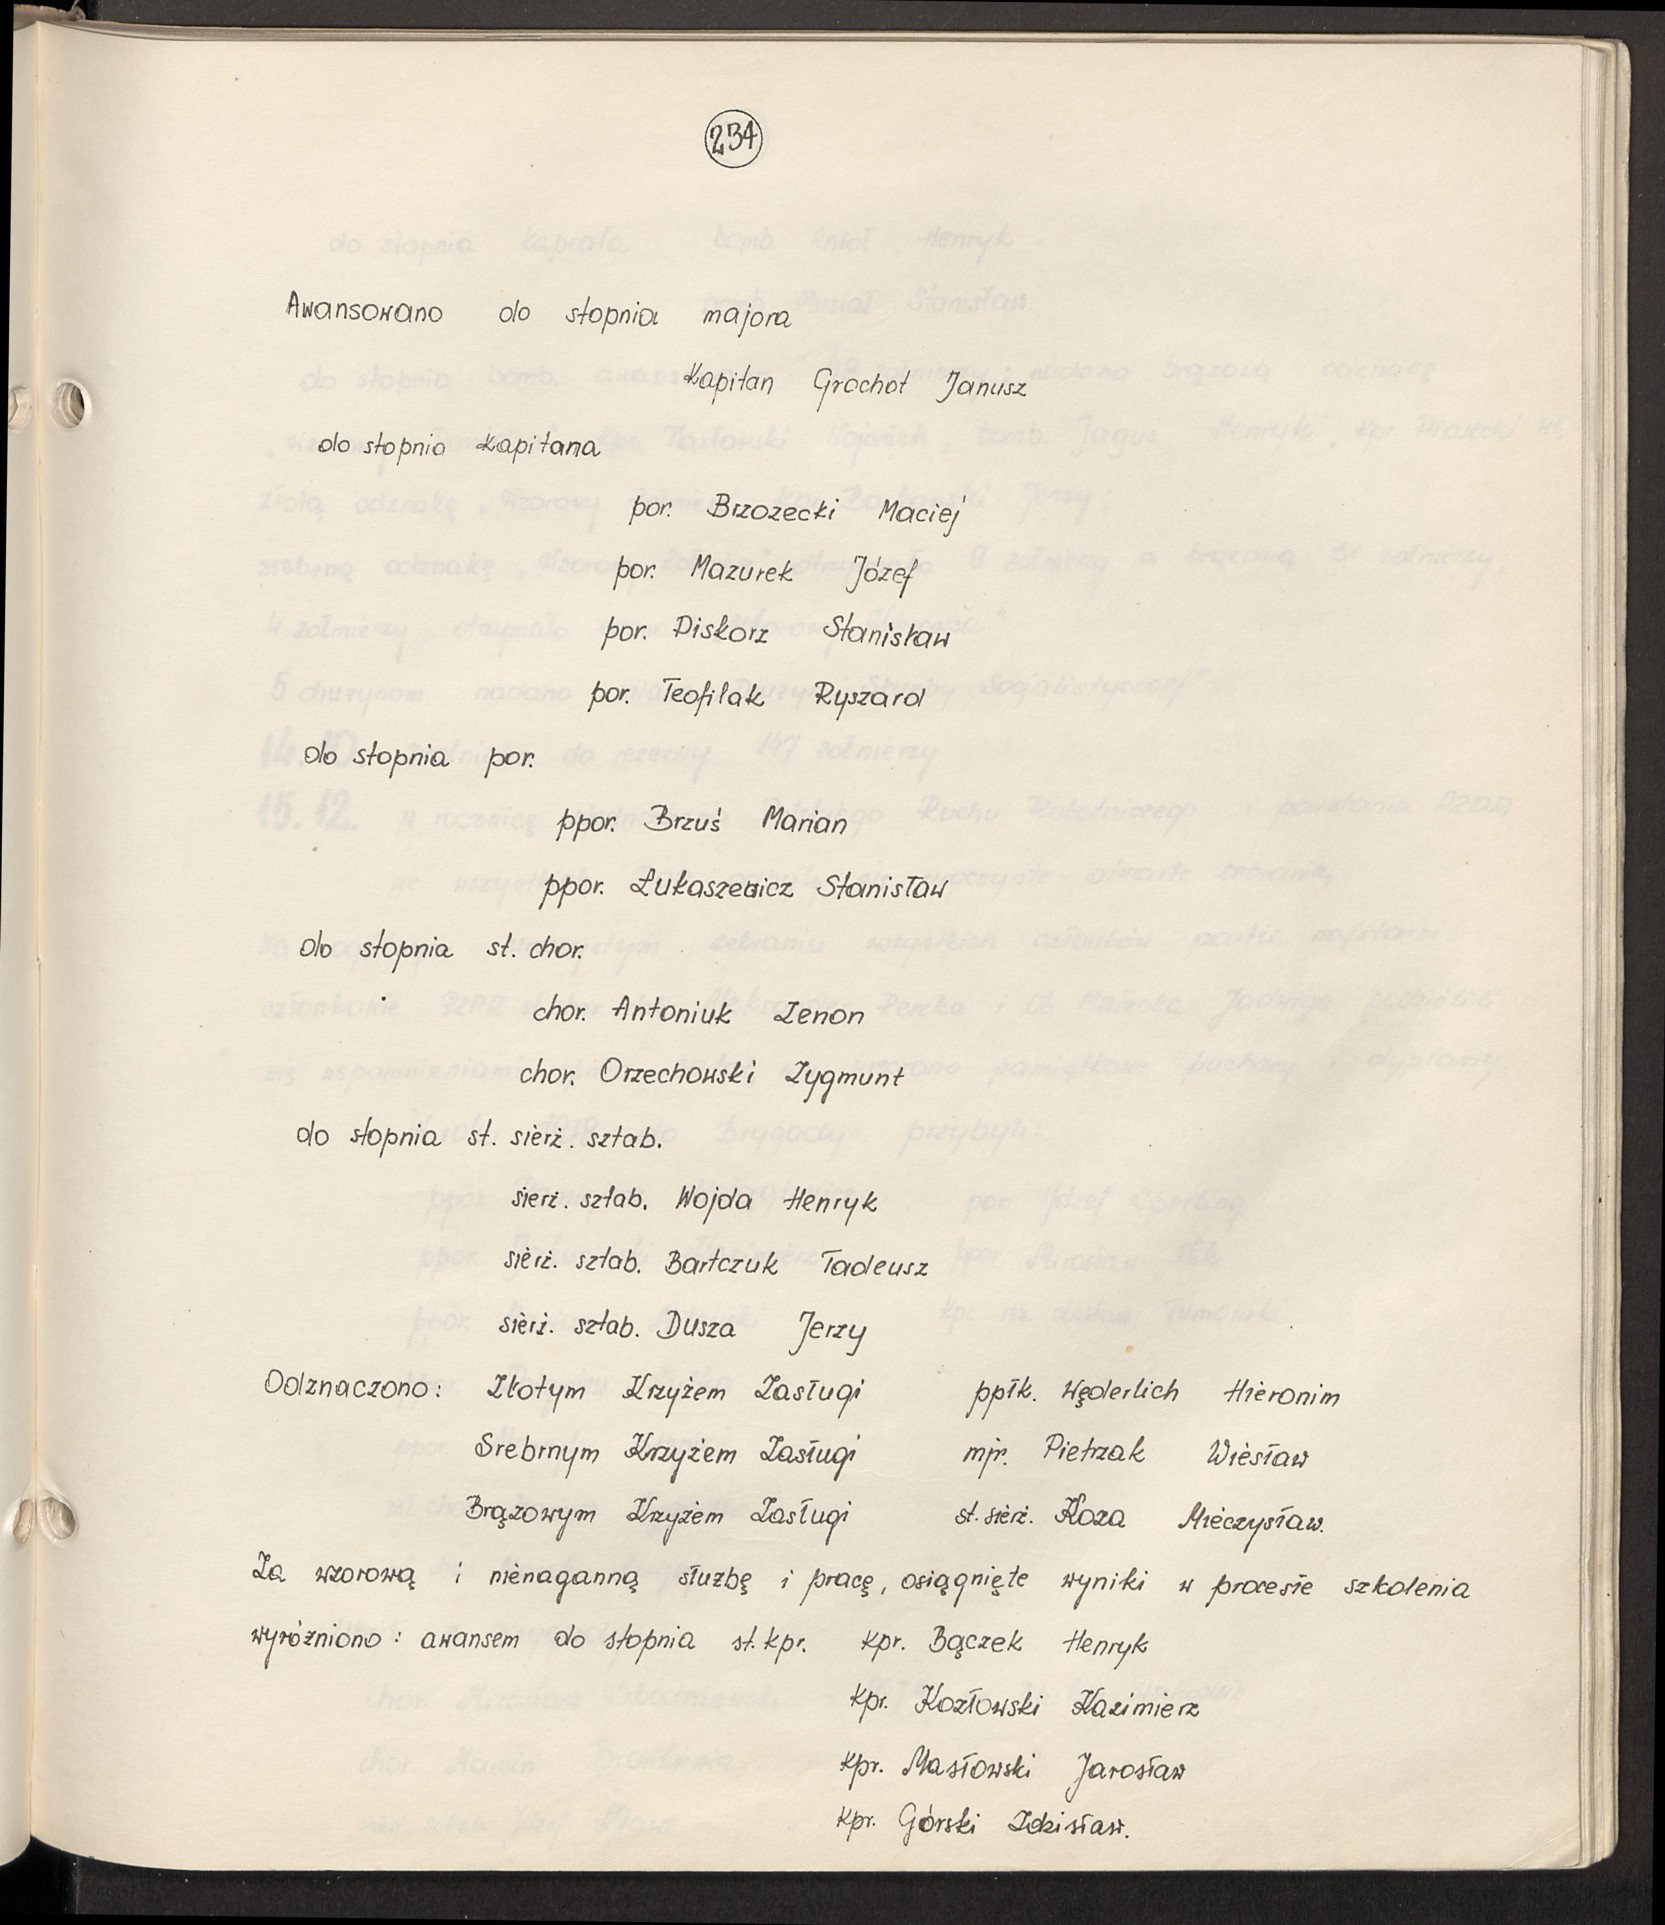 234
Awansowano do stopnia majora
Kapitan Grochot Janusz
do stopnia Kapitana
por. Brzozecki Maciej
por. Mazurek Józef
por. Piskorz Stanisław
por. Teofilak Ryszard
do stopnia por.
ppor. Brzuś Marian
ppor. Łukaszewicz Stanisław
do stopnia st. chor.
chor. Antoniuk Zenon
chor. Orzechowski Zygmunt
do stopnia st. sierż. sztab.
sierż. sztab. Wojda Henryk
sierż. sztab. Bartczuk Tadeusz
sierż. sztab. Dusza Jerzy
Odznaczono: Złotym Krzyżem Zasługi ppłk. Węderlich Hieronim
Srebrnym Krzyżem Zasługi mjr. Pietrzak Wiesław
Brązowym Krzyżem Zasługi st. sierż. Koza Mieczysław.
Za wzorową i nienaganną służbę i pracę, osiągnięte wyniki w procesie szkolenia
wyróżniono: awansem do stopnia st. kpr. kpr. Bączek Henryk
kpr. Kozłowski Kazimierz
kpr. Masłowski Jarosław
kpr. Górski Zdzisław.